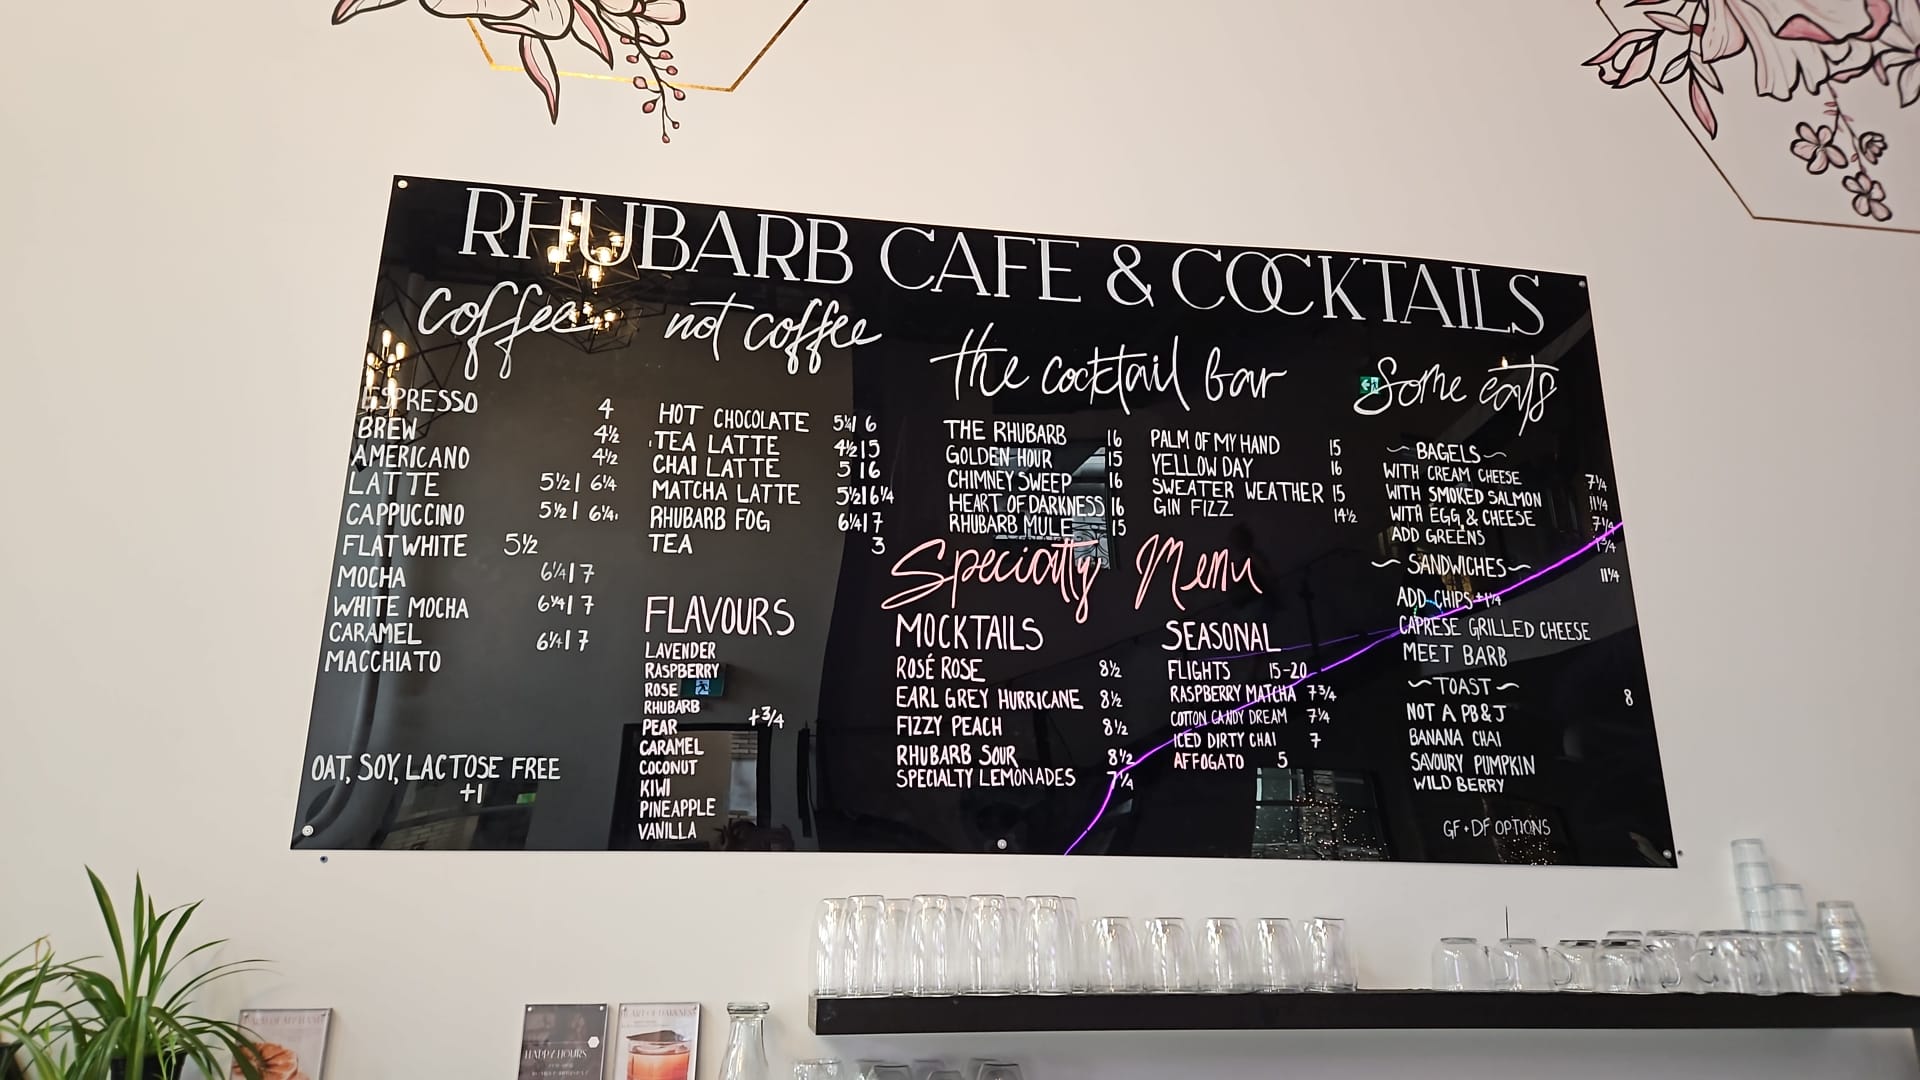 RHUBARB CAFE & COCKTAILS
coffee
ESPRESSO 4
BREW 4½
AMERICANO 4½
LATTE 5½ | 6¼
CAPPUCCINO 5½ | 6¼
FLAT WHITE 5½
MOCHA 6¼ | 7
WHITE MOCHA 6¼ | 7
CARAMEL 6¼ | 7
MACCHIATO
OAT, SOY, LACTOSE FREE
+1
not coffee
HOT CHOCOLATE 5¼ | 6
TEA LATTE 4½ | 5
CHAI LATTE 5 | 6
MATCHA LATTE 5½ | 6¼
RHUBARB FOG 6¼ | 7
TEA 3
FLAVOURS
LAVENDER
RASPBERRY
ROSE
RHUBARB
PEAR +¾
CARAMEL
COCONUT
KIWI
PINEAPPLE
VANILLA
the cocktail bar
THE RHUBARB 16
GOLDEN HOUR 15
CHIMNEY SWEEP 16
HEART OF DARKNESS 16
RHUBARB MULE 15
PALM OF MY HAND 15
YELLOW DAY 16
SWEATER WEATHER 15
GIN FIZZ 14½
Specialty Menu
MOCKTAILS
ROSÉ ROSE 8½
EARL GREY HURRICANE 8½
FIZZY PEACH 8½
RHUBARB SOUR 8½
SPECIALTY LEMONADES 7¼
SEASONAL
FLIGHTS 15-20
RASPBERRY MATCHA 7¾
COTTON CANDY DREAM 7¼
ICED DIRTY CHAI 7
AFFOGATO 5
Some eats
~ BAGELS ~
WITH CREAM CHEESE 7¼
WITH SMOKED SALMON 11¼
WITH EGG & CHEESE 7¼
ADD GREENS 1¾
~ SANDWICHES ~ 11¼
ADD CHIPS +1¼
CAPRESE GRILLED CHEESE
MEET BARB
~ TOAST ~ 8
NOT A PB & J
BANANA CHAI
SAVOURY PUMPKIN
WILD BERRY
GF + DF OPTIONS
PALM OF MY HAND
HAPPY HOURS
HEART OF DARKNESS